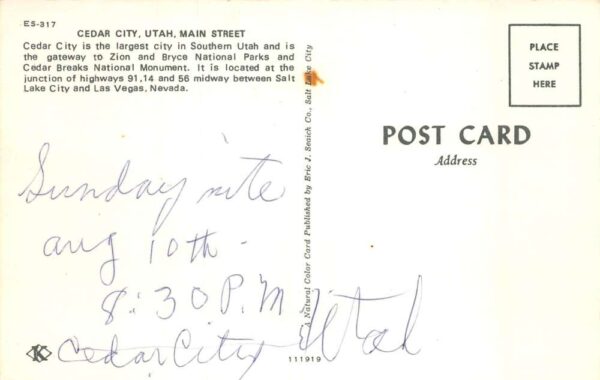 ES-317
CEDAR CITY, UTAH, MAIN STREET
Cedar City is the largest city in Southern Utah and is
the gateway to Zion and Bryce National Parks and
Cedar Breaks National Monument. It is located at the
junction of highways 91,14 and 56 midway between Salt
Lake City and Las Vegas, Nevada.
Sunday nite
aug 10th -
8:30 P.M
Cedar City Utah
K
A Natural Color Card Published by Eric J. Seaich Co., Salt Lake City
111919
PLACE
STAMP
HERE
POST CARD
Address